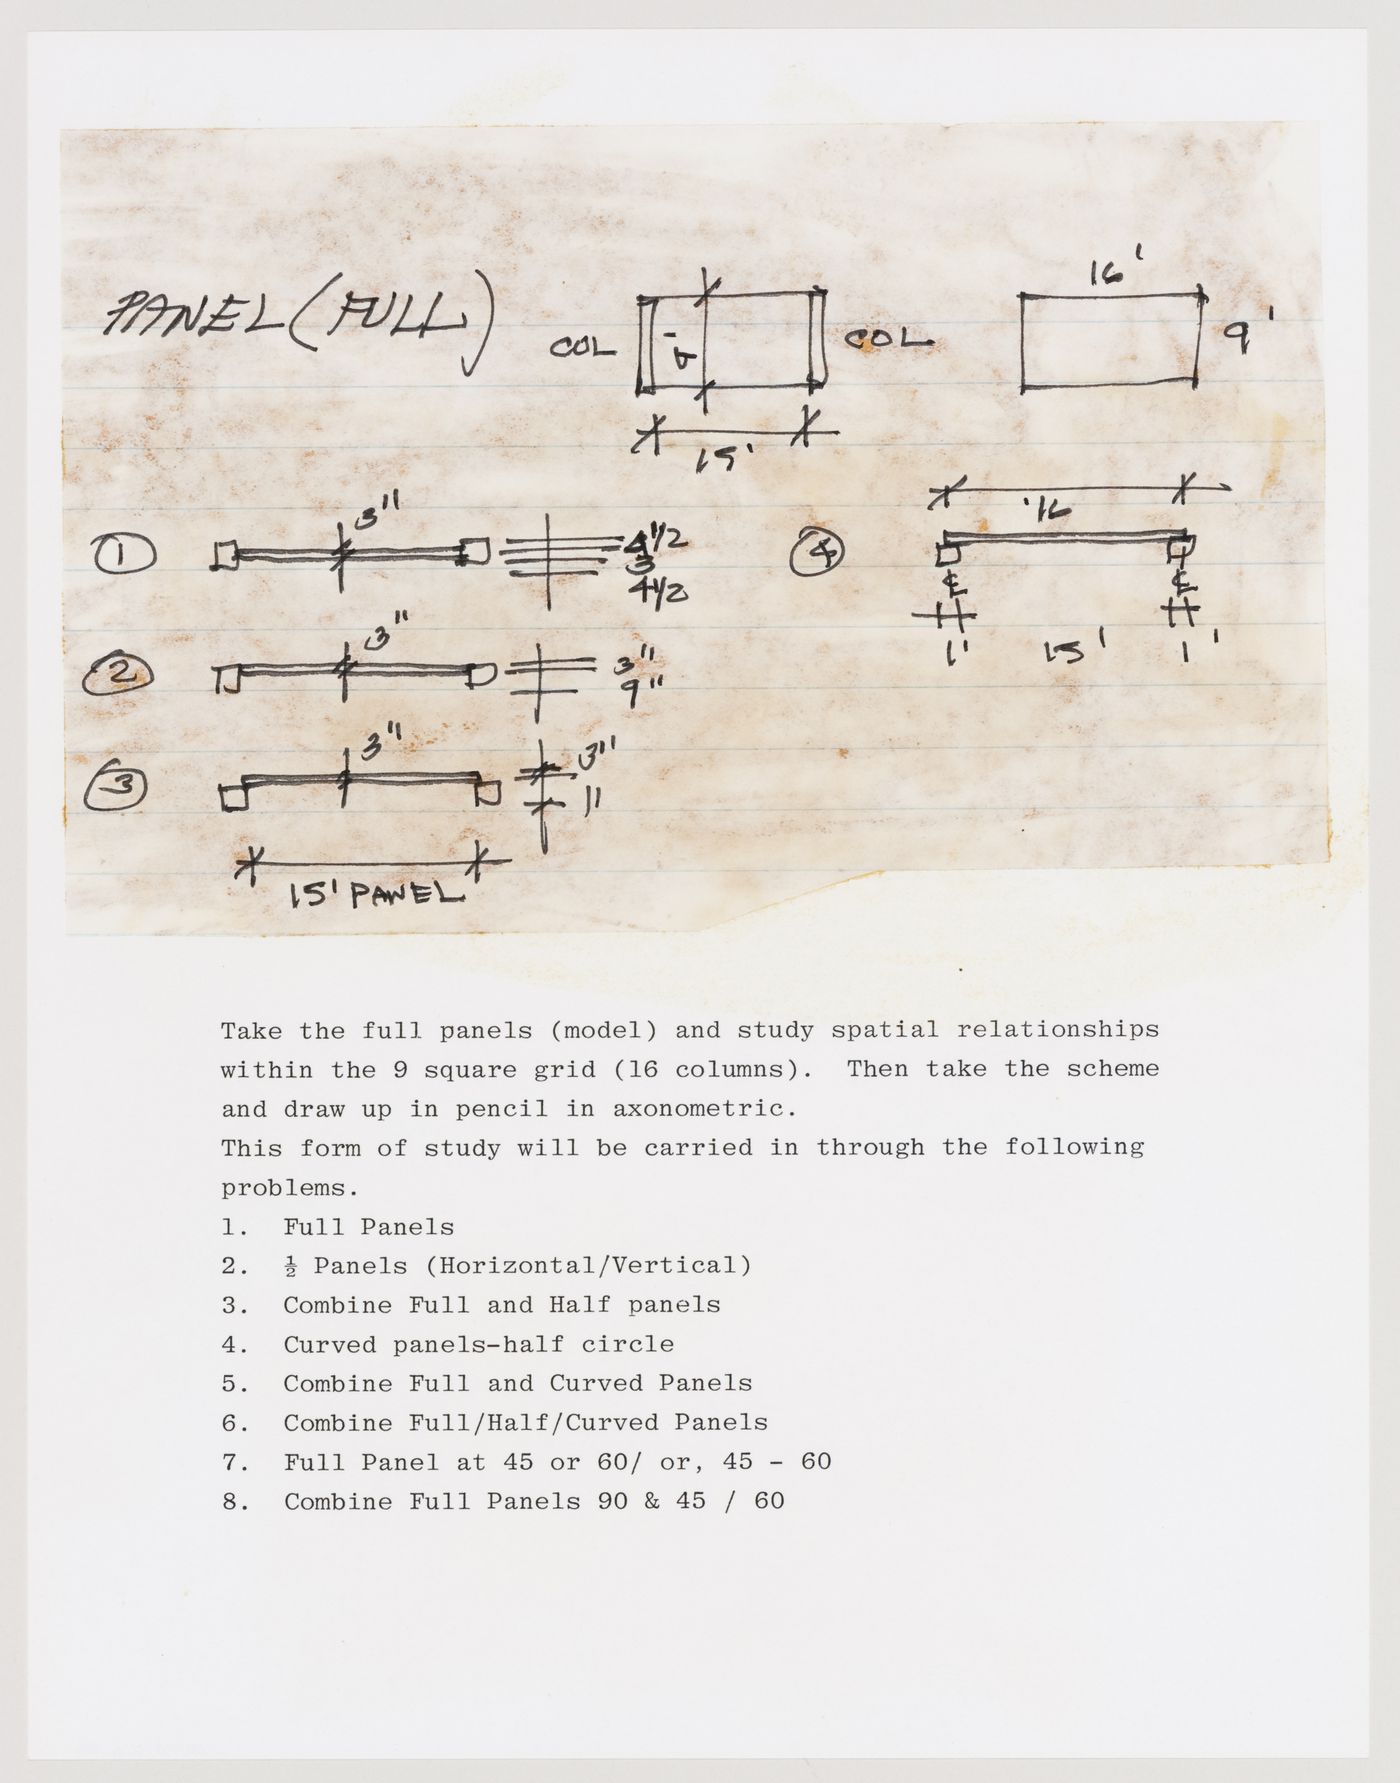 PANEL (FULL)
COL
9'
COL
15'
16'
9'
1
3"
4 1/2
3
4 1/2
4
16'
℄
℄
1'
15'
1'
2
3"
3"
9"
3
3"
3"
15' PANEL
Take the full panels (model) and study spatial relationships
within the 9 square grid (16 columns).  Then take the scheme
and draw up in pencil in axonometric.
This form of study will be carried in through the following
problems.
1.  Full Panels
2.  ½ Panels (Horizontal/Vertical)
3.  Combine Full and Half panels
4.  Curved panels-half circle
5.  Combine Full and Curved Panels
6.  Combine Full/Half/Curved Panels
7.  Full Panel at 45 or 60/ or, 45 - 60
8.  Combine Full Panels 90 & 45 / 60